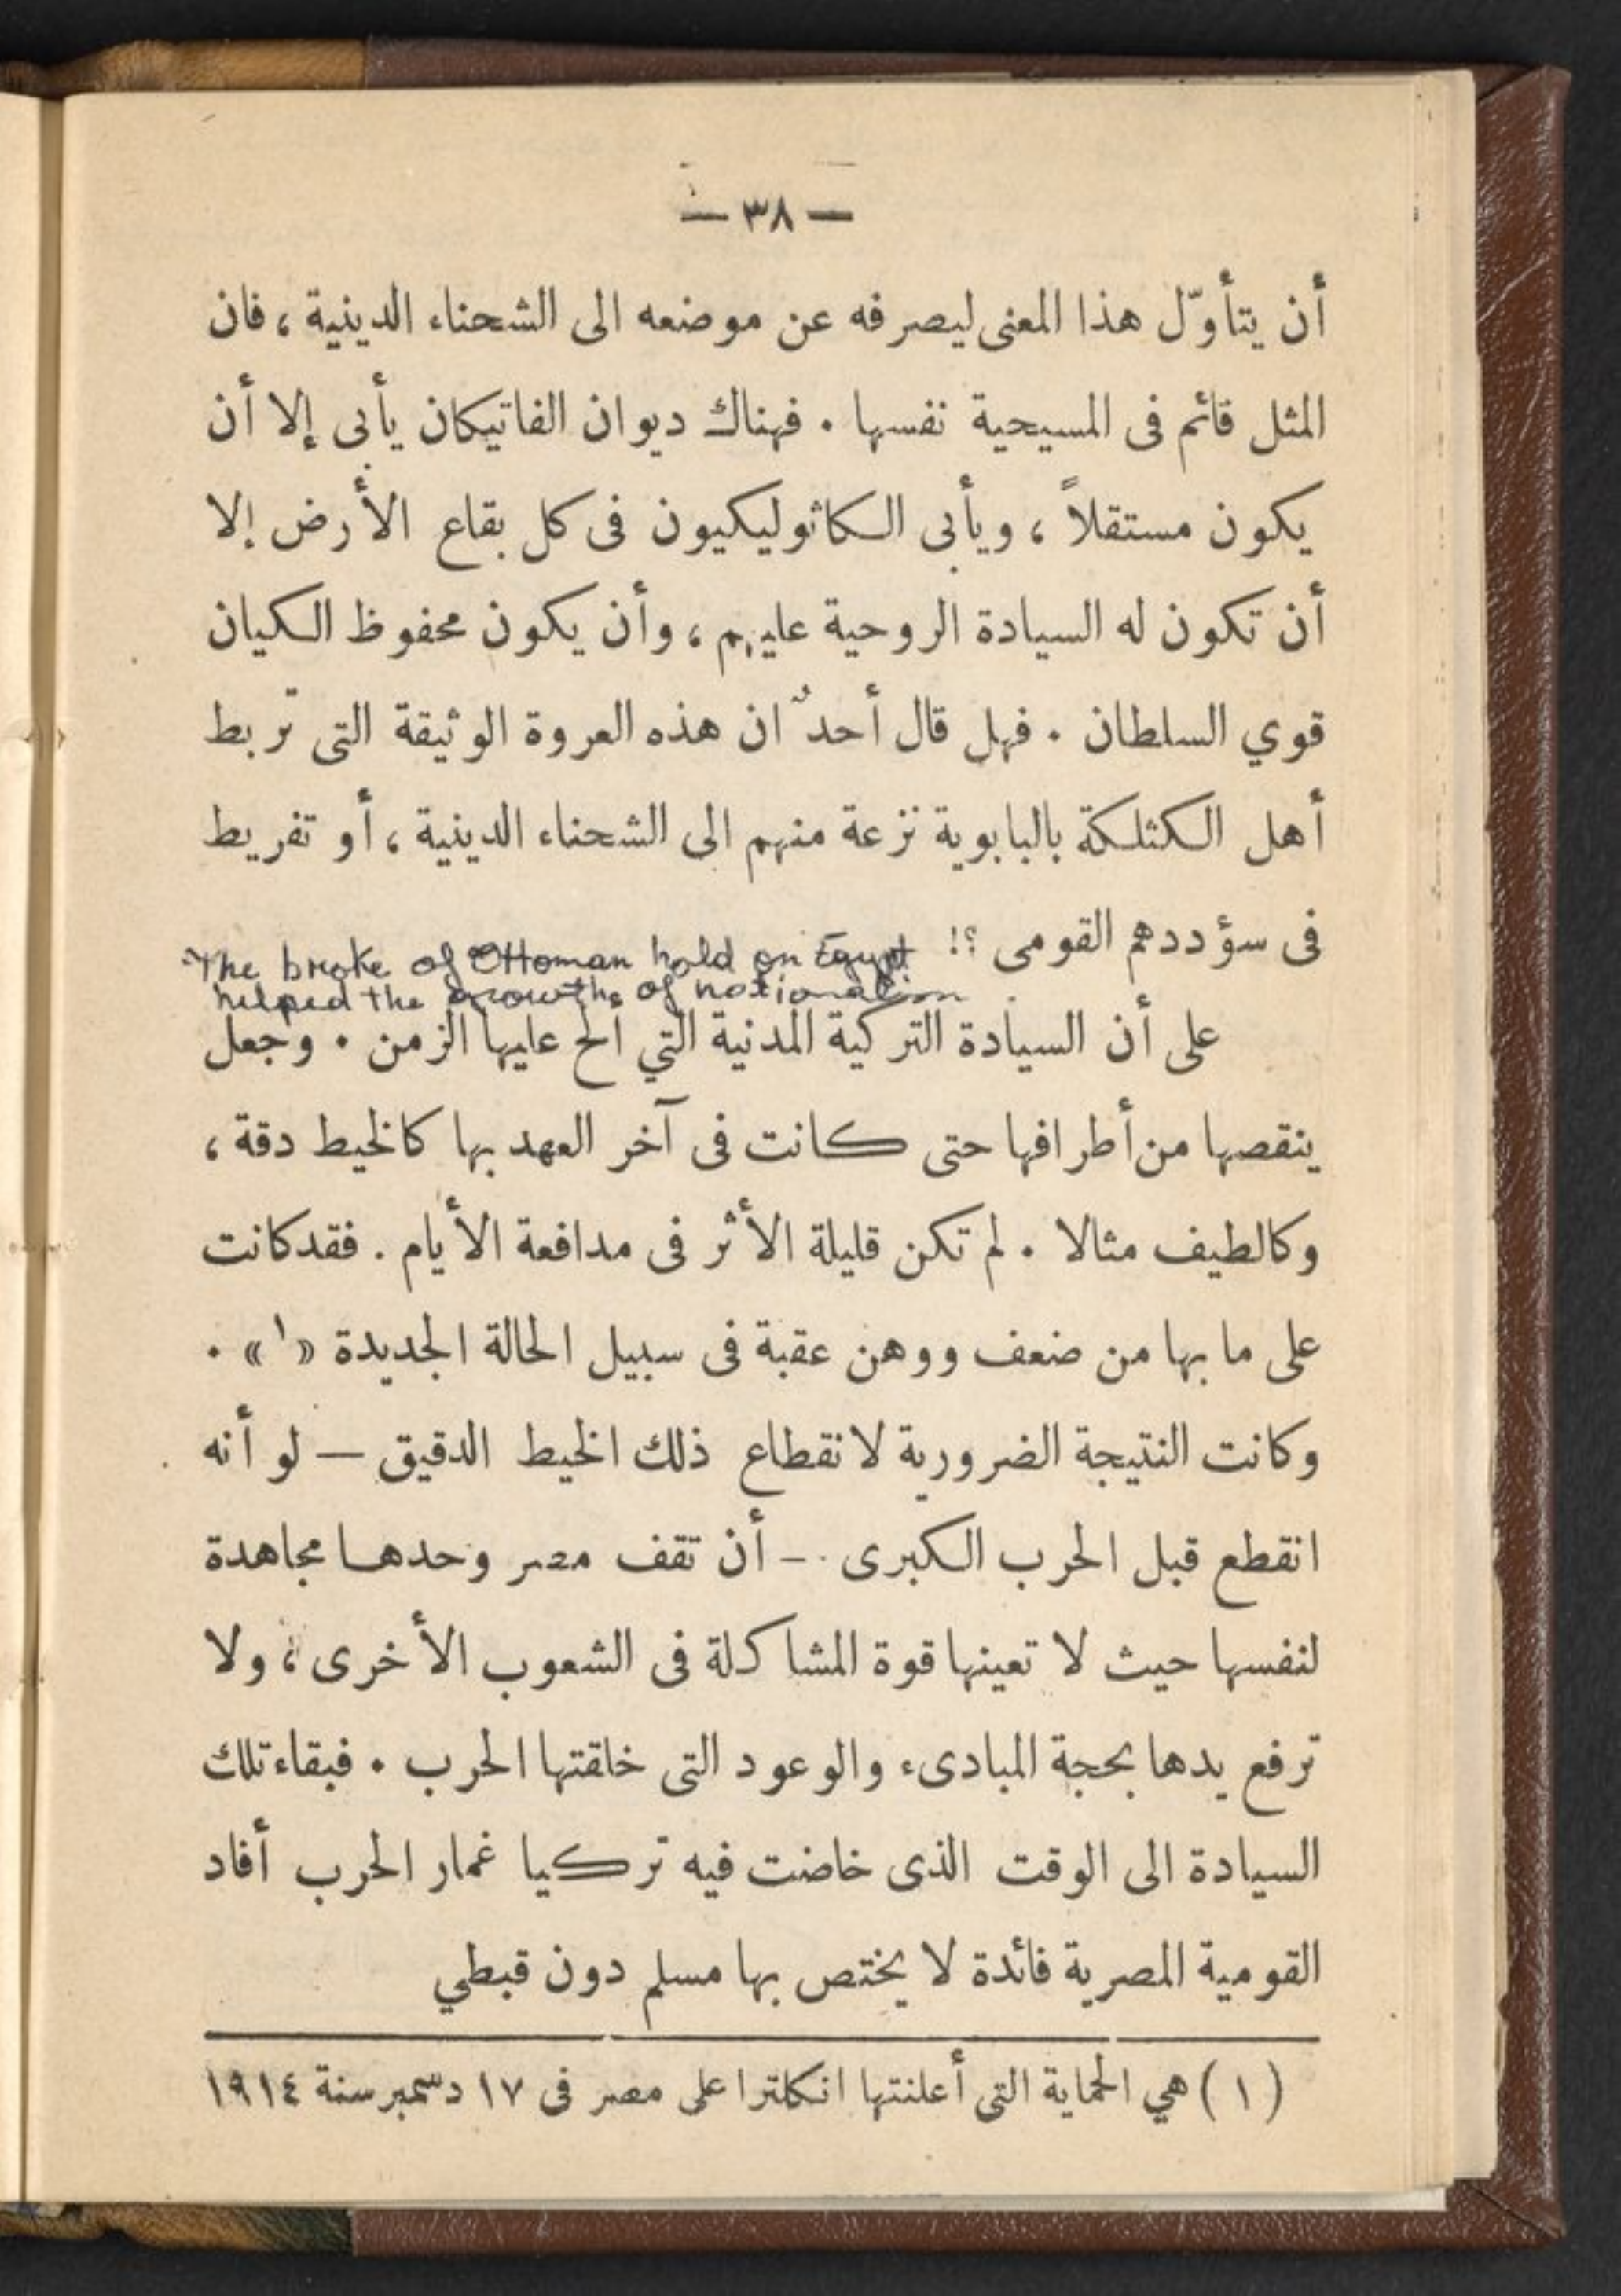 — ٣٨ —
أن يتأوّل هذا المعنى ليصرفه عن موضعه الى الشحناء الدينية ، فان
المثل قائم فى المسيحية نفسها . فهناك ديوان الفاتيكان يأبى إلا أن
يكون مستقلاً ، ويأبى الكاثوليكيون فى كل بقاع الأرض إلا
أن تكون له السيادة الروحية عليهم ، وأن يكون محفوظ الكيان
قوي السلطان . فهل قال أحدٌ ان هذه العروة الوثيقة التى تربط
أهل الكثلكة بالبابوية نزعة منهم الى الشحناء الدينية ، أو تفريط
فى سؤددهم القومى ؟!
The broke of Ottoman hold on Egypt
helped the growths of nationalism
على أن السيادة التركية المدنية التي ألح عليها الزمن . وجعل
ينقصها من أطرافها حتى كانت فى آخر العهد بها كالخيط دقة ،
وكالطيف مثالا . لم تكن قليلة الأثر فى مدافعة الأيام . فقد كانت
على ما بها من ضعف ووهن عقبة فى سبيل الحالة الجديدة «١» .
وكانت النتيجة الضرورية لانقطاع ذلك الخيط الدقيق — لو أنه
انقطع قبل الحرب الكبرى — أن تقف مصر وحدها مجاهدة
لنفسها حيث لا تعينها قوة المشاكلة فى الشعوب الأخرى ، ولا
ترفع يدها بحجة المبادىء والوعود التى خلقتها الحرب . فبقاء تلك
السيادة الى الوقت الذى خاضت فيه تركيا غمار الحرب أفاد
القومية المصرية فائدة لا يختص بها مسلم دون قبطي
(١) هي الحماية التى أعلنتها انكلترا على مصر فى ١٧ دسمبر سنة ١٩١٤